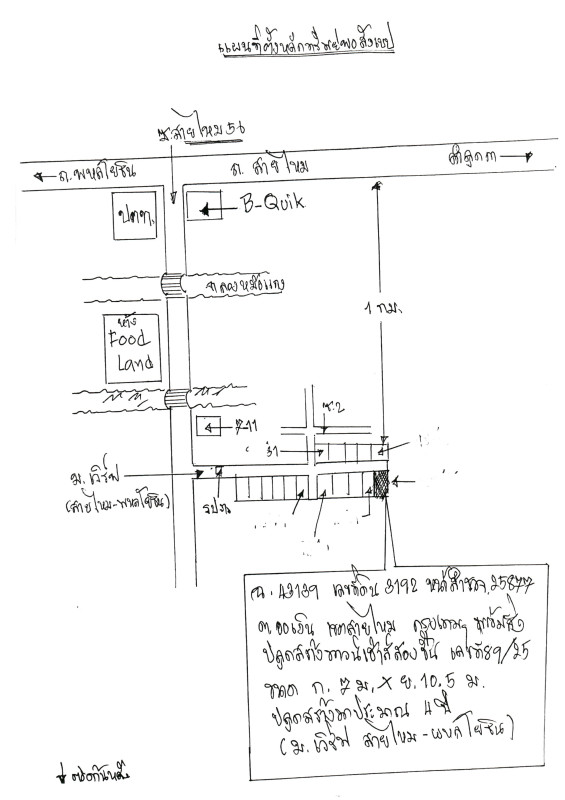 แผนที่ตั้งหลักทรัพย์พอสังเขป
ซ.สายไหม 56
ถ.พหลโยธิน
ถ. สายไหม
ลำลูกกา
ปตท.
B-Quik
คลองหนองผักชี
1 กม.
ห้าง
Food
Land
ซ.2
7-11
ม. เวิร์ฟ
(สายไหม-พหลโยธิน)
รปภ.
ฉ. 43139 เลขที่ดิน 3192 หน้าสำรวจ 25877
ต.ออเงิน เขตสายไหม กรุงเทพฯ พร้อมสิ่ง
ปลูกสร้างทาวน์เฮ้าส์สองชั้น เลขที่ 89/25
ขนาด ก. 7 ม. X ย. 10.5 ม.
ปลูกสร้างมาประมาณ 4 ปี
(ม.เวิร์ฟ สายไหม - พหลโยธิน)